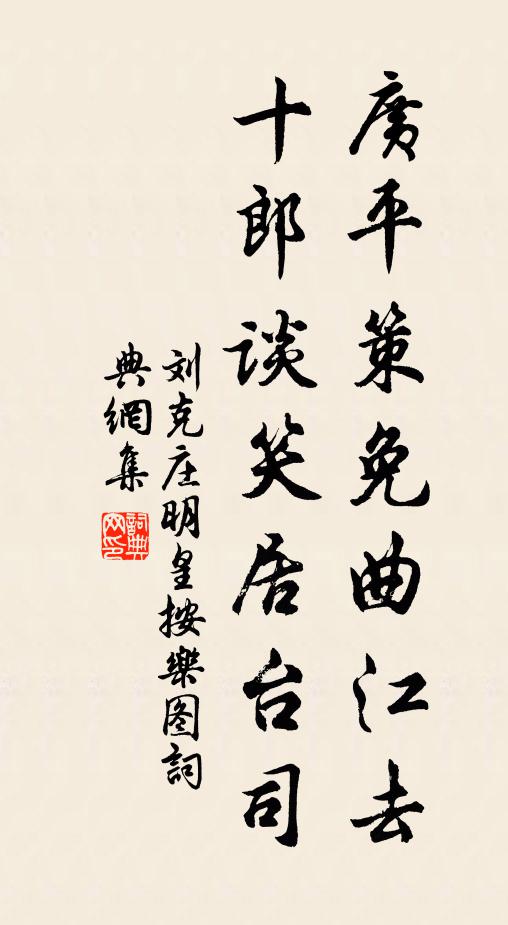 廣平策免曲江去
十郎谈笑居台司
刘克庄明皇按樂图詞
典網集
詞典网印